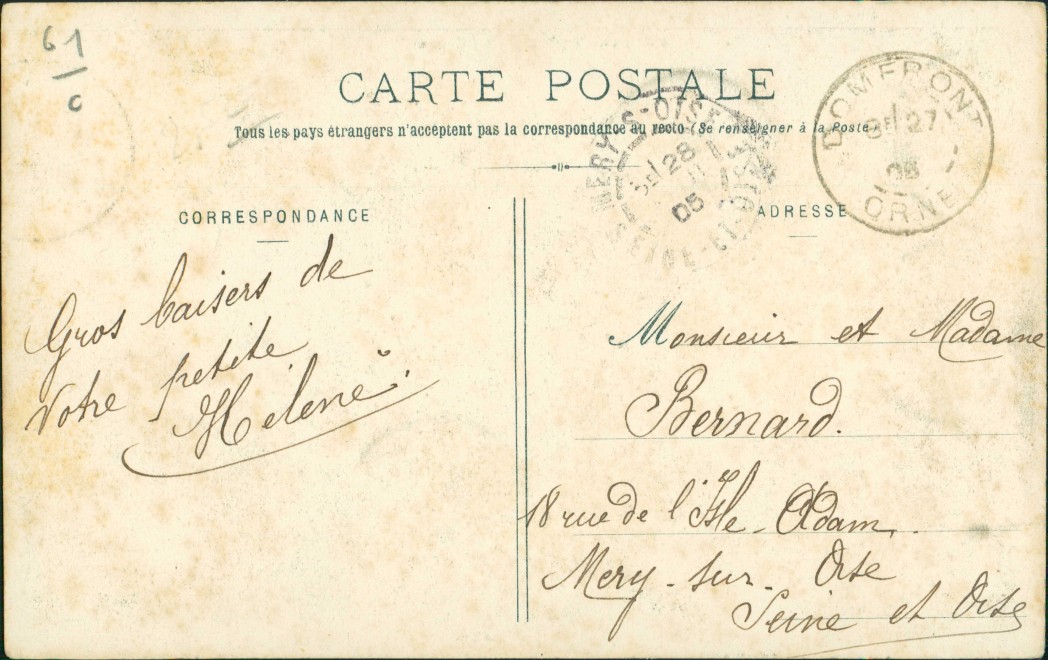 61
c
CARTE POSTALE
Tous les pays étrangers n'acceptent pas la correspondance au recto (Se renseigner à la Poste
MERY-S-OISE
28
05
SEINE-ET-OISE
DOMFRONT
27
05
ORNE
CORRESPONDANCE
Gros baisers de
votre petite
Hélène.
ADRESSE
Monsieur et Madame
Bernard.
18 rue de l'Isle-Adam
Mery-sur-Oise
Seine et Oise